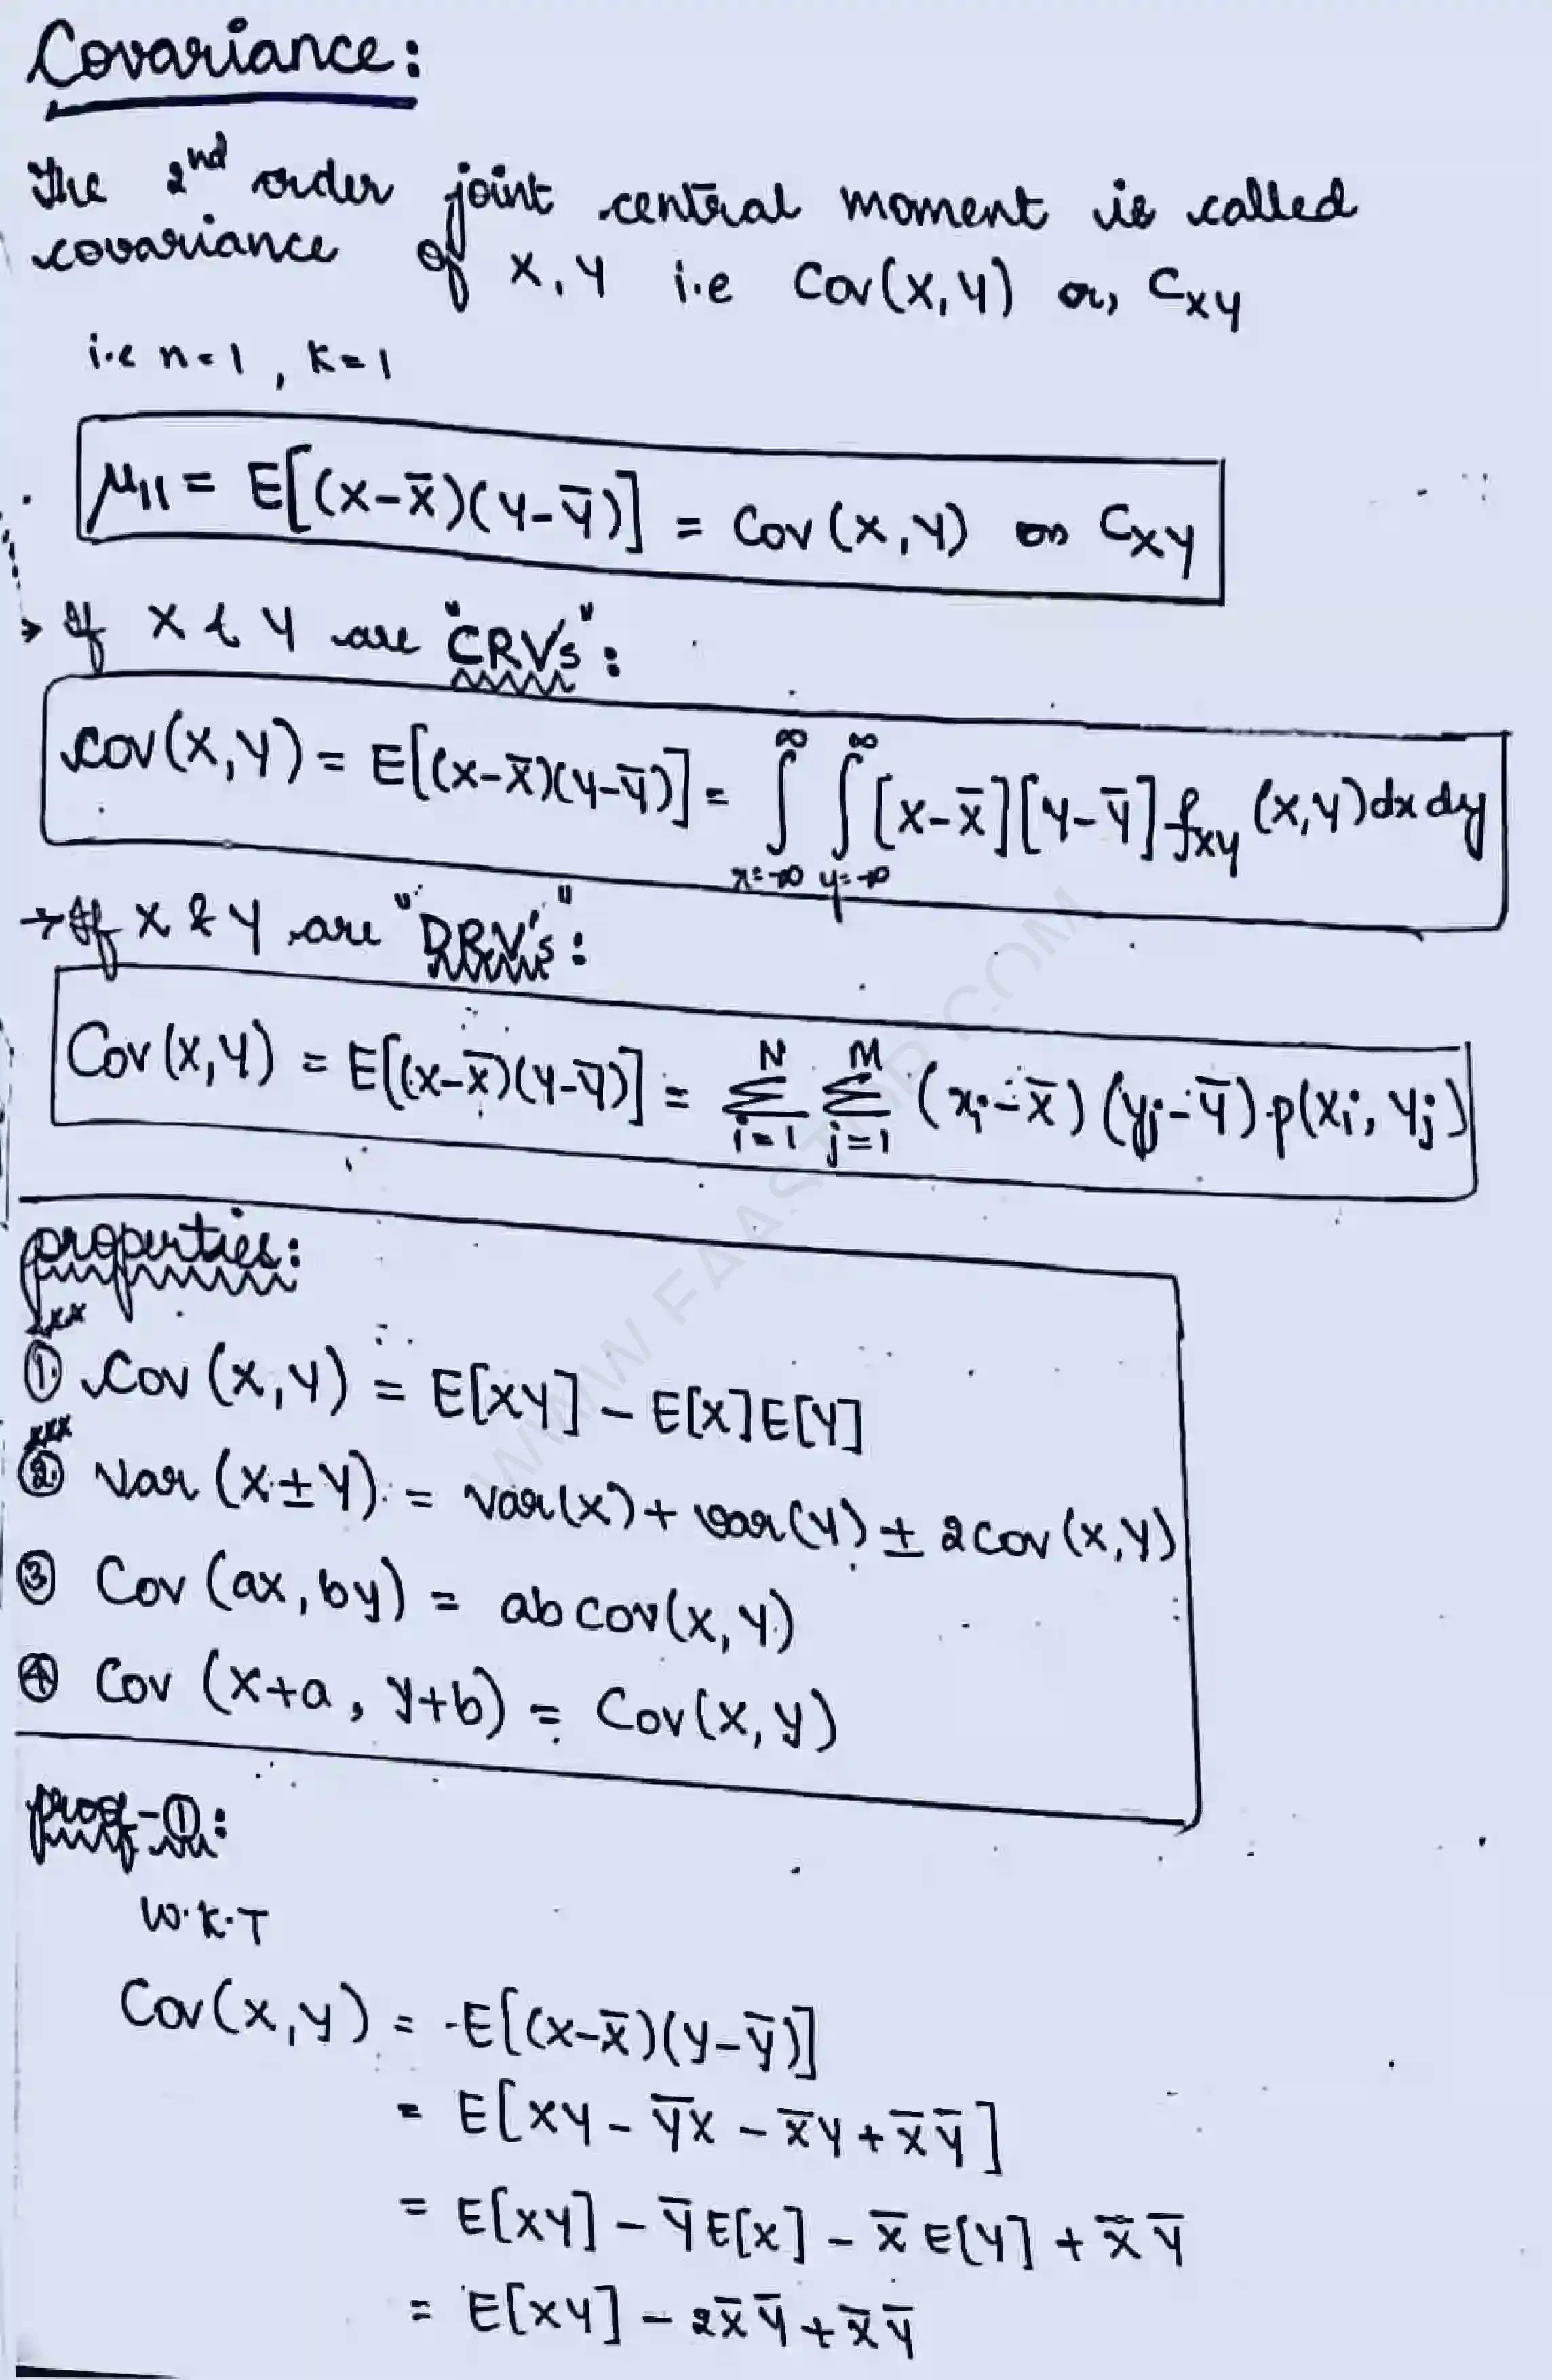 Covariance:
The 2nd order joint central moment is called
covariance of X, Y i.e Cov(X, Y) or, CXY
i.e n=1, K=1
μ11 = E[(X-X̄)(Y-Ȳ)] = Cov(X,Y) or CXY
→ If X & Y are "CRV's":
Cov(X,Y) = E[(X-X̄)(Y-Ȳ)] = ∫_{x=-∞}^{∞} ∫_{y=-∞}^{∞} [X-X̄][Y-Ȳ] fXY (X,Y) dx dy
→ If X & Y are "DRV's":
Cov(X,Y) = E[(X-X̄)(Y-Ȳ)] = Σ_{i=1}^{N} Σ_{j=1}^{M} (xi-X̄) (yj-Ȳ) p(xi, yj)
properties:
xxx
① Cov (X,Y) = E[XY] - E[X]E[Y]
xxx
② Var (X±Y) = Var(X) + Var(Y) ± 2Cov(X,Y)
③ Cov (ax, by) = ab Cov(X,Y)
④ Cov (X+a, Y+b) = Cov(X,Y)
proof-①:
W.K.T
Cov(X,Y) = E[(X-X̄)(Y-Ȳ)]
= E[XY - ȲX - X̄Y + X̄Ȳ]
= E[XY] - ȲE[X] - X̄E[Y] + X̄Ȳ
= E[XY] - 2X̄Ȳ + X̄Ȳ